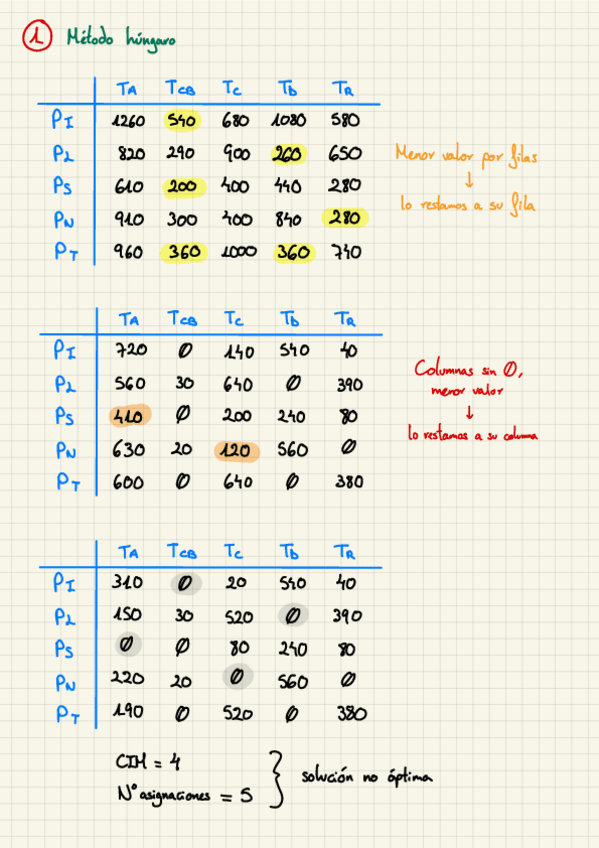 1 Método húngaro
TA TCB TC TD TR
PI 1260 540 680 1080 580
PL 820 290 900 260 650
PS 610 200 400 440 280
PN 910 300 400 840 280
PT 960 360 1000 360 740
Menor valor por filas
↓
lo restamos a su fila
TA TCB TC TD TR
PI 720 0 140 540 40
PL 560 30 640 0 390
PS 410 0 200 240 80
PN 630 20 120 560 0
PT 600 0 640 0 380
Columnas sin 0,
menor valor
↓
lo restamos a su columna
TA TCB TC TD TR
PI 310 0 20 540 40
PL 150 30 520 0 390
PS 0 0 80 240 80
PN 220 20 0 560 0
PT 190 0 520 0 380
CIM = 4
Nº asignaciones = 5
solución no óptima